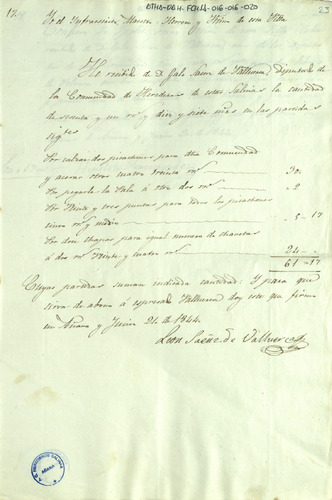 ATHA-DAH-FCH14-016-016-020
17.
23
Yo el infraescrito Maestro Herrero y vecino de esta Villa
He recibido de D. Galo Saenz de Valluerca Diputado de
la Comunidad de Herederos de estas Salinas la cantidad
de sesenta y un rs y diez y siete mrs en las partidas
sigtes
Por calzar dos picachones para dha Comunidad
y acerar otros cuatro treinta rs 30.
Por pegarle la Pala á otro dos rs 2
Por Veinte y tres puntas para todos los picachones
cinco rs y medio 5-17
Por doce chapas para igual numero de
á dos rs Veinte y cuatro rs 24-.
61-17
Cuyas partidas suman indicada cantidad: Y para que
sirva de abono á espresado Valluerca doy este que firmo
en Añana y Junio 21 de 1844.
Leon Saenz de Valluerca
AÑANA